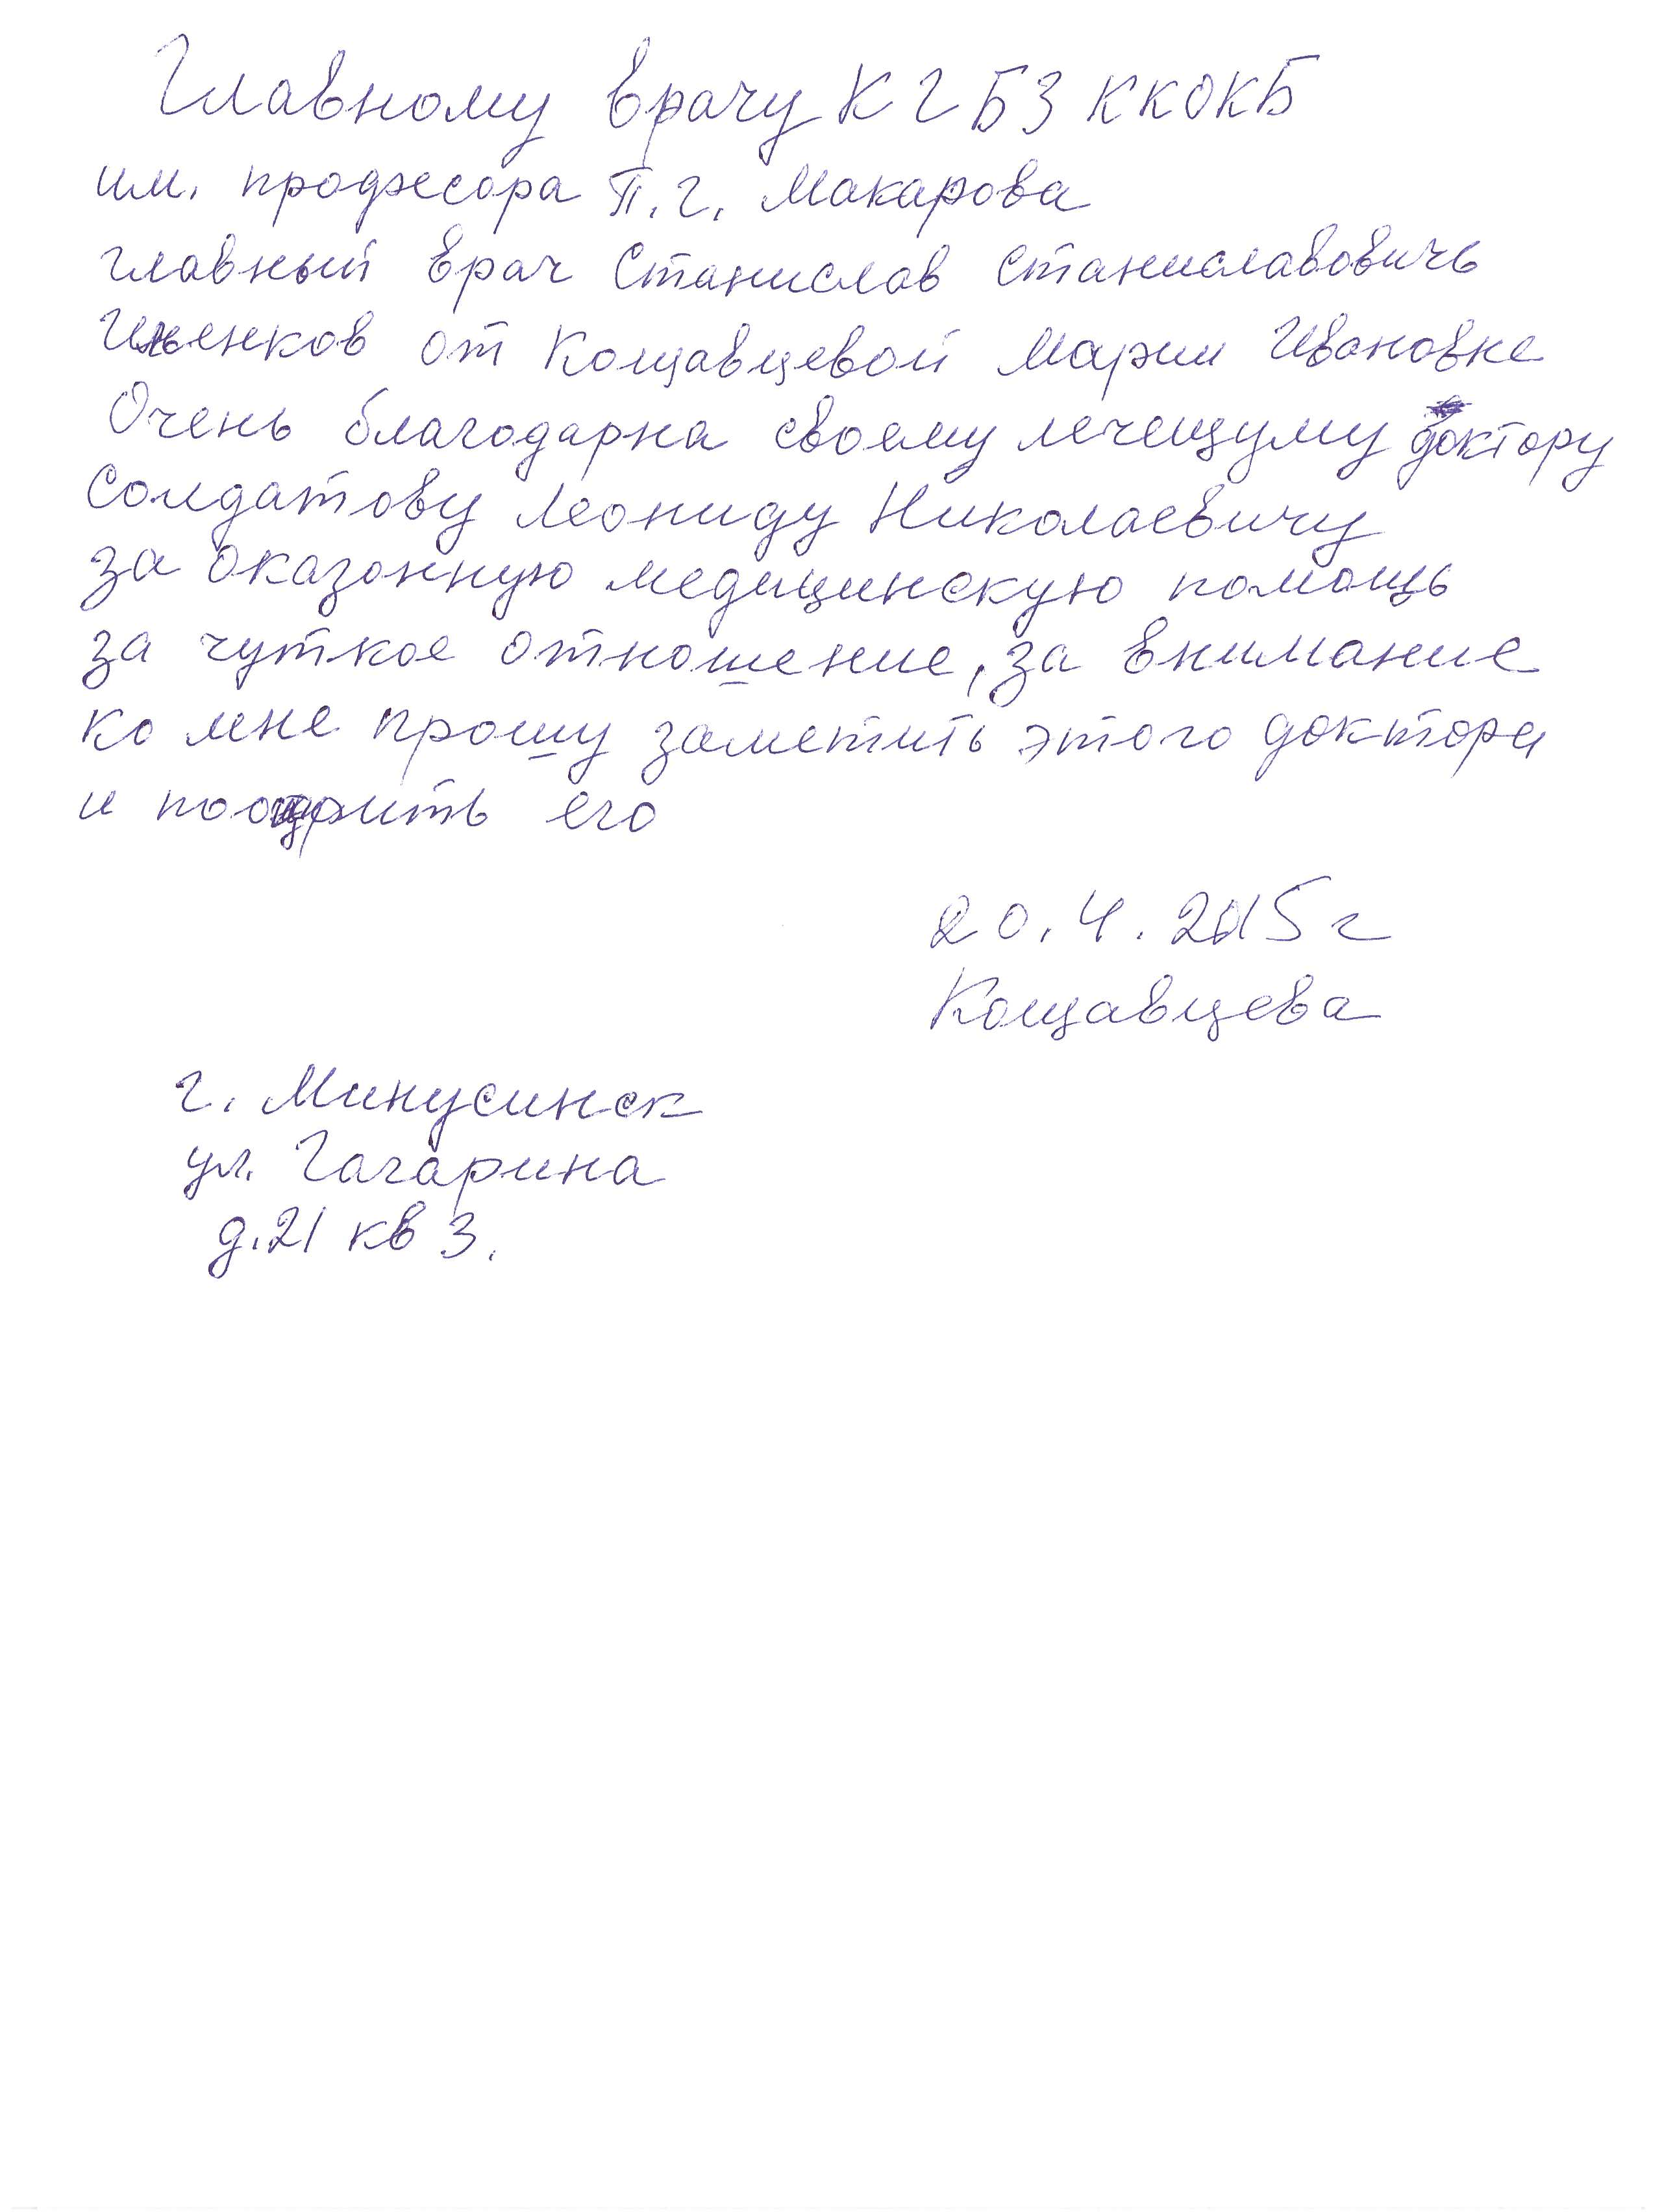 Главному врачу КГБЗ ККОКБ
им. профессора П.Г. Макарова
главный врач Станислав Станиславовичь
Ильенков от Кощавцевой Марии Ивановне
Очень благодарна своему лечещуму доктору
Солдатову Леониду Николаевичу
за оказанную медицинскую помощь
за чуткое отношение, за внимание
ко мне прошу заметить этого доктора
и поощрить его
20.4.2015 г
Кощавцева
г. Минусинск
ул. Гагарина
д.21 кв 3.